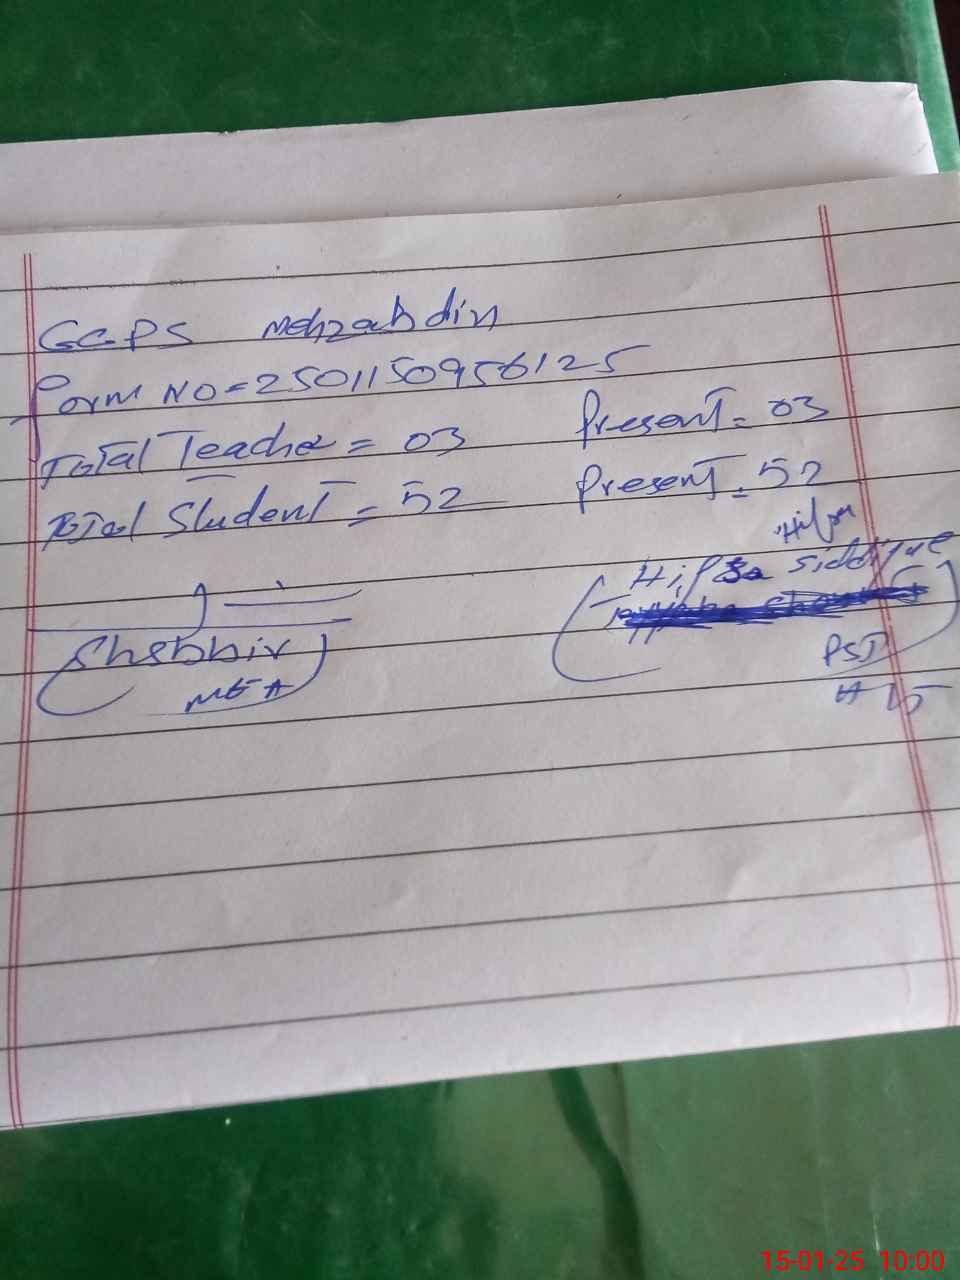 GGPS Mehzabdin
Form NO = 2501150956125
Total Teacher = 03 Present = 03
Total Student = 52 Present = 52
Shabbir
MEA
Hifza Siddique
PST
15-01-25 10:00